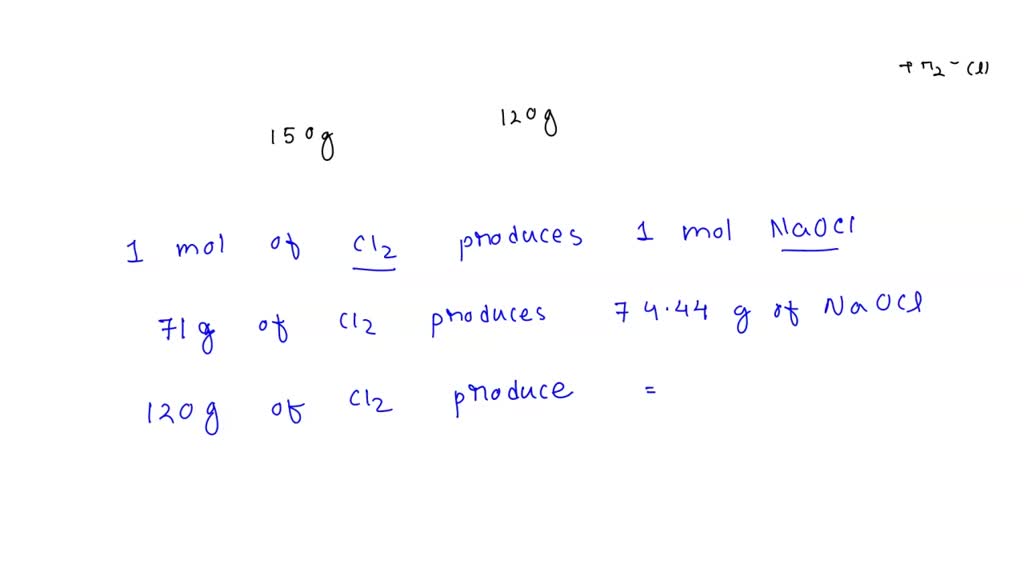 (l)
120g
150g
1 mol of Cl2 produces 1 mol NaOCl
71g of Cl2 produces 74.44 g of NaOCl
120g of Cl2 produce =